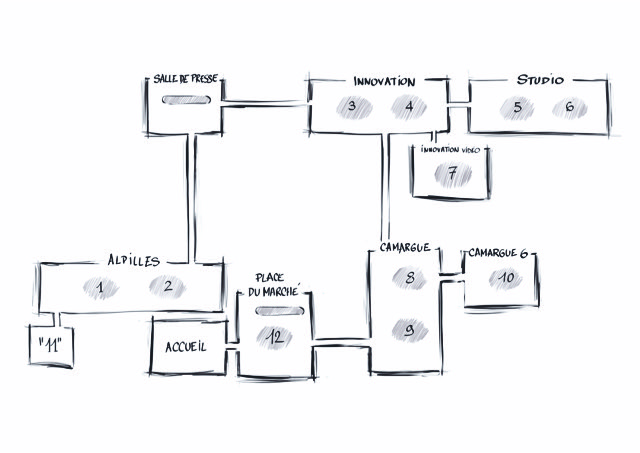 SALLE DE PRESSE
INNOVATION
3 4
STUDIO
5 6
INNOVATION VIDEO
7
ALPILLES
1 2
"11"
ACCUEIL
PLACE
DU MARCHÉ
12
CAMARGUE
8
9
CAMARGUE 6
10